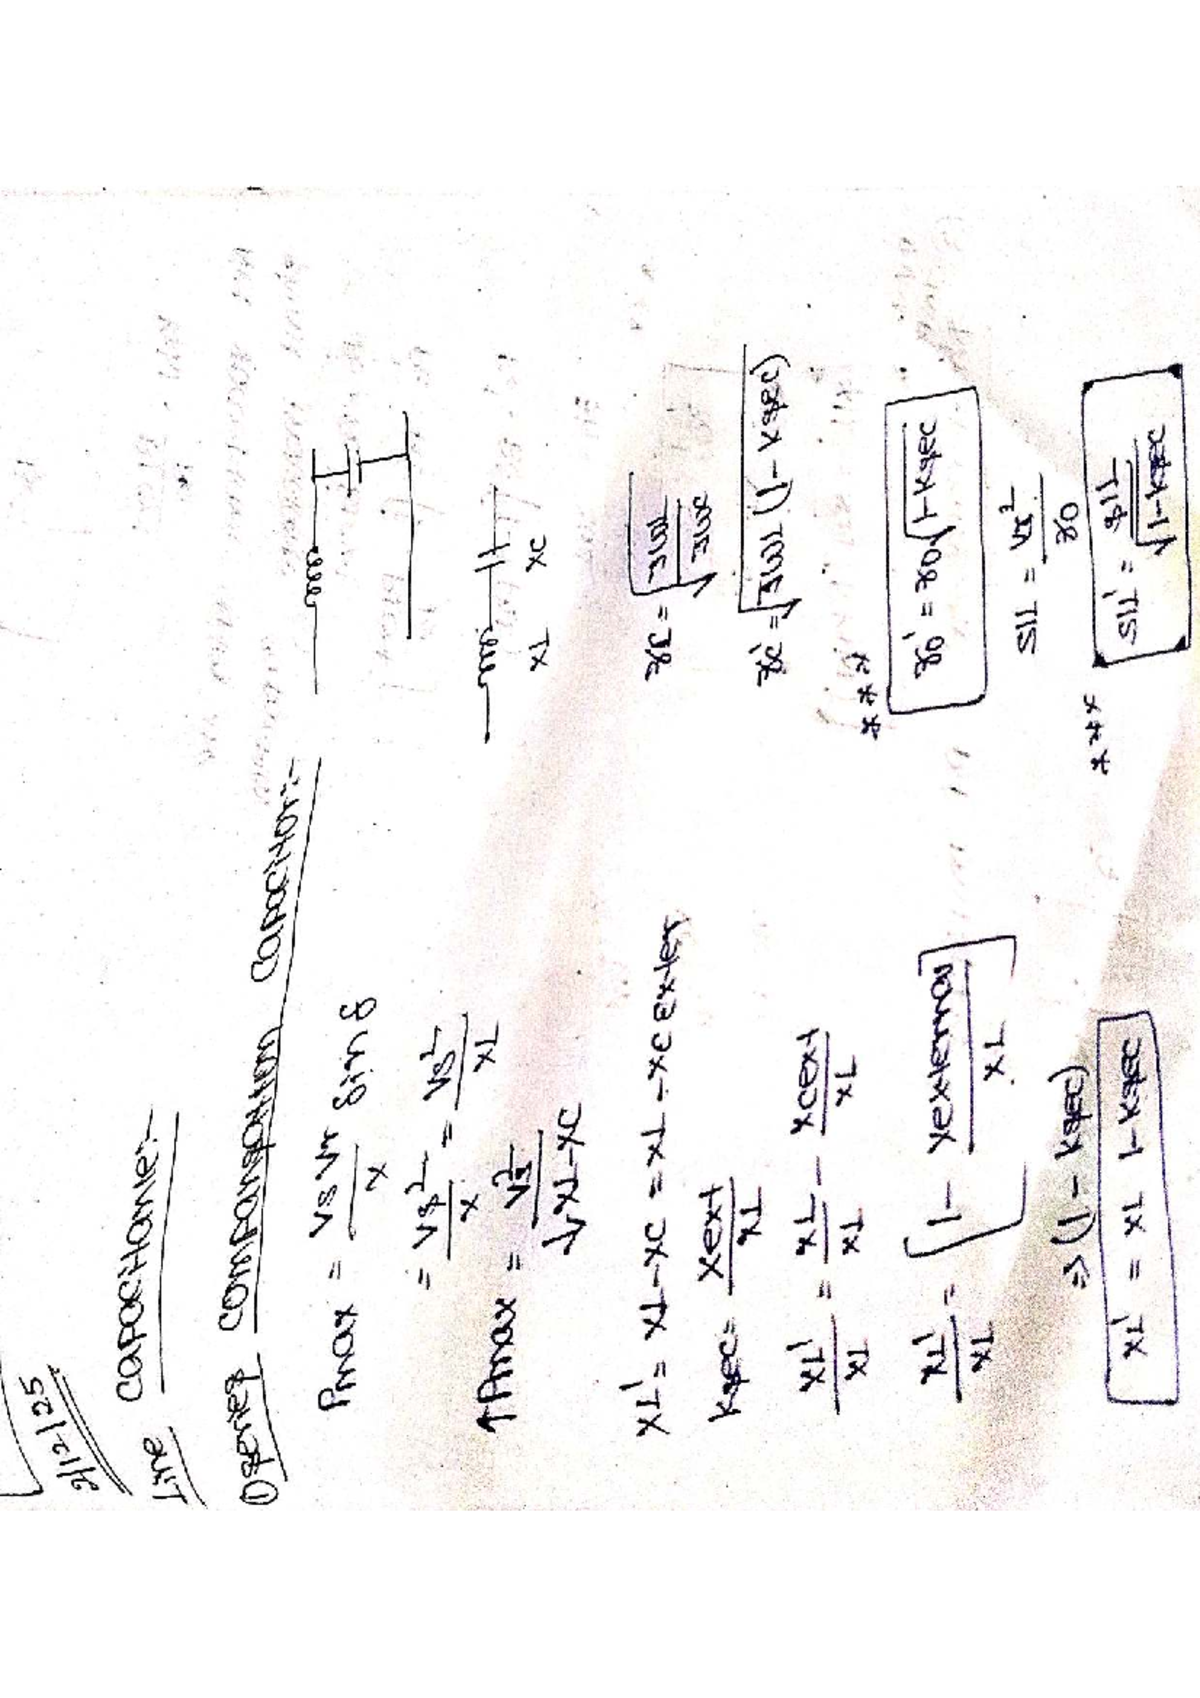 2/12/25
Line Capacitanie:-
① series Compansation Capacitor:-
Pmax = Vs Vr / X Sin δ
= Vs² / X = Vs² / XL
↑Pmax = Vs² / ↓XL-XC
XL' = XL-XC = XL-XC Exter
Ksec = Xext / XL
XL' / XL = XL / XL - Xcext / XL
XL' / XL = [1 - Xexternal / XL]
=> (1 - Ksec)
XL' = XL 1-Ksec
XL XC
Zc =
Zc' =
*** Z0' = Z0 √1-Ksec
SIL = / Z0
*** SIL' = SIL / √1-Ksec